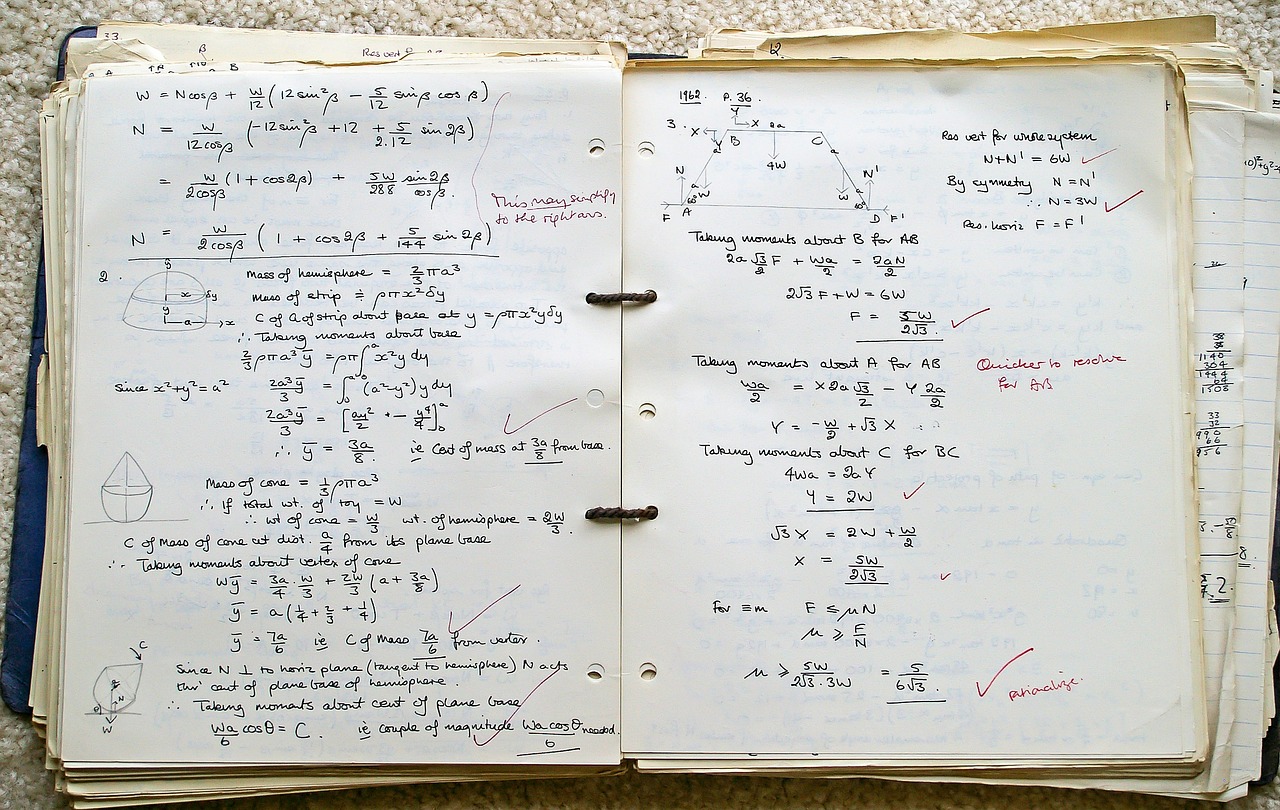 33.
β
Res vert
B
W = Ncosβ + W/12 (12 sin²β − 5/12 sinβ cosβ)
N = W/12cosβ (−12sin²β + 12 + 5/2.12 sin2β)
= W/2cosβ (1 + cos2β) + 5W/288 sin2β/cosβ.
This may simplify
to the right ans.
N = W/2cosβ (1 + cos2β + 5/144 sin2β)
2.
y
x δy
y
a x
Mass of hemisphere = 2/3 πa³
Mass of strip ≑ ρπx²δy
C of G of strip about base at y = ρπx²yδy
∴ Taking moments about base
2/3 ρπa³ȳ = ρπ∫₀ᵃ x²y dy
Since x²+y²=a² 2a³ȳ/3 = ∫₀ᵃ (a²−y²)y dy
2a³ȳ/3 = [ay²/2 − y⁴/4]₀ᵃ
∴ ȳ = 3a/8 ie Cent of mass at 3a/8 from base.
Mass of cone = 1/3 ρπa³
∴ If total wt. of toy = W
∴ wt of cone = W/3 wt. of hemisphere = 2W/3.
C of Mass of cone at dist. a/4 from its plane base
∴ Taking moments about vertex of cone
Wȳ = 3a/4 . W/3 + 2W/3 (a + 3a/8)
ȳ = a(1/4 + 2/3 + 1/4)
ȳ = 7a/6 ie C of Mass 7a/6 from vertex.
C
N
θ
W
Since N ⊥ to horiz plane (tangent to hemisphere) N acts
thro' cent of plane base of hemisphere.
∴ Taking moments about cent of plane base
Wa/6 cosθ = C. ie couple of magnitude Wa cosθ/6 needed.
62.
1962. P.36.
3.
Y
X X 2a
Y B C
a a
4W
N a a N'
W W
60° 60°
F A D F'
Res vert for whole system
N+N' = 6W
By symmetry N = N'
∴ N = 3W
Res. horiz F = F'
Taking moments about B for AB
2a √3/2 F + Wa/2 = 2aN/2
2√3 F + W = 6W
F = 5W/2√3.
Taking moments about A for AB
Quicker to resolve
for AB
Wa/2 = X 2a √3/2 − Y 2a/2
Y = −W/2 + √3 X
Taking moments about C for BC
4Wa = 2aY
Y = 2W
√3 X = 2W + W/2
X = 5W/2√3
For ≡m F ≤ μN
μ ≥ F/N
μ ≥ 5W/2√3.3W = 5/6√3.
rationalize.
38
38
1140
304
1444
64
1508
33
32
990
66
956
8.
2.